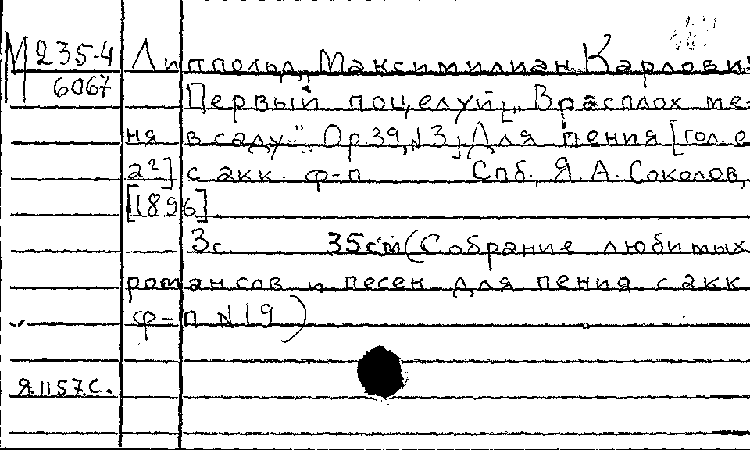 М 235-4 Липпольд, Максимилиан Карлович
6067 Первый поцелуй; "Врасплох ме-
ня в саду". Op 39, N 3; Для пения [гол. e-
a²] с акк. ф-п Спб., Я. А. Соколов,
[1896]
3с. 35см (Собрание любимых
романсов и песен для пения с акк.
ф-п N 19)
Я 1157с.